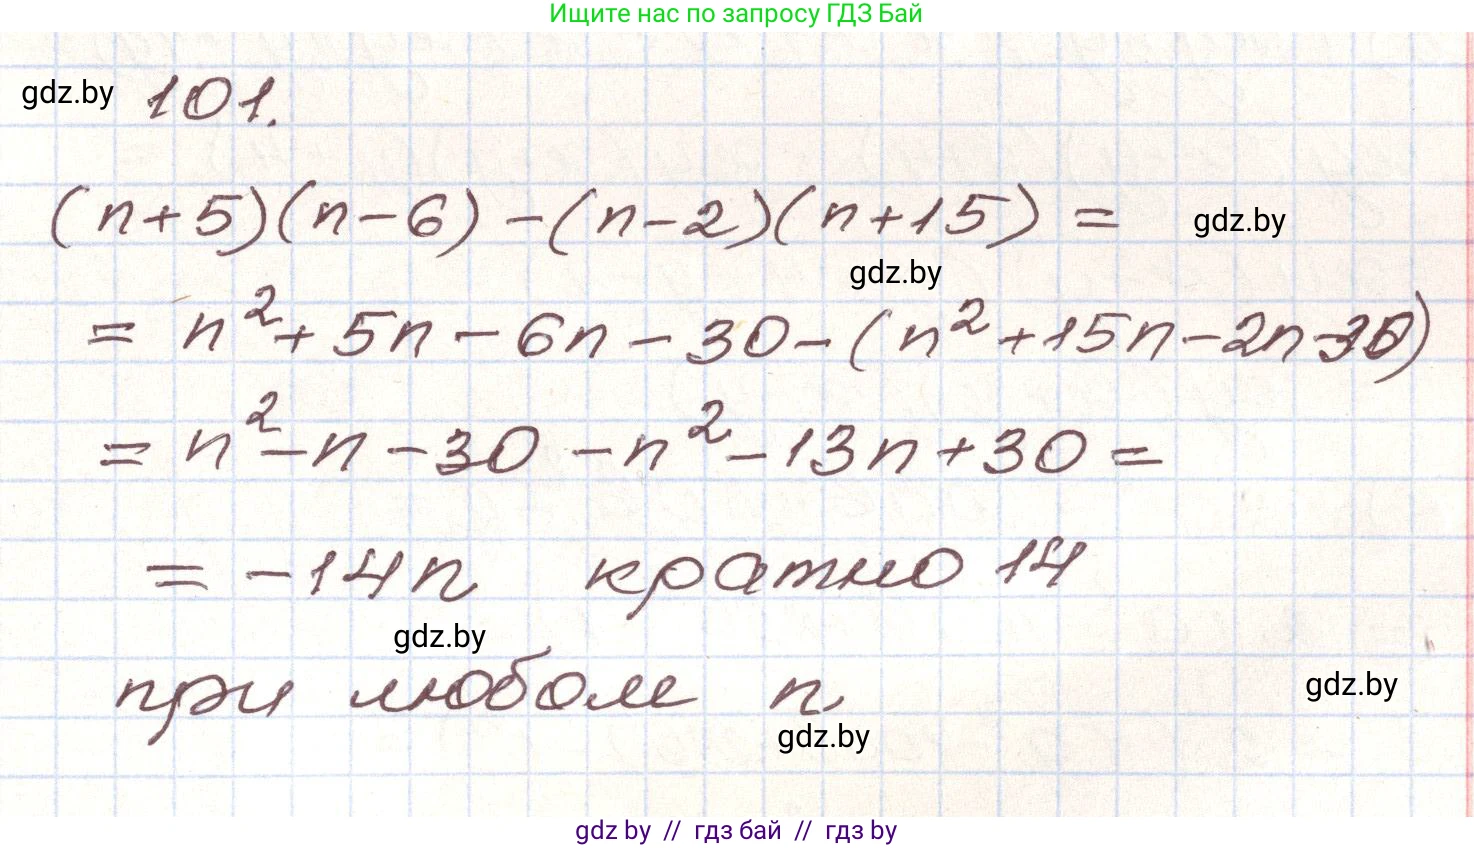 Ищите нас по запросу ГДЗ Бай
gdz.by 101.
(n+5)(n-6)-(n-2)(n+15)=
gdz.by
gdz.by
= n²+5n-6n-30-(n²+15n-2n-30)
= n²-n-30-n²-13n+30=
= -14n кратно 14
gdz.by
при любом n
gdz.by
gdz.by
gdz by // гдз бай // гдз by